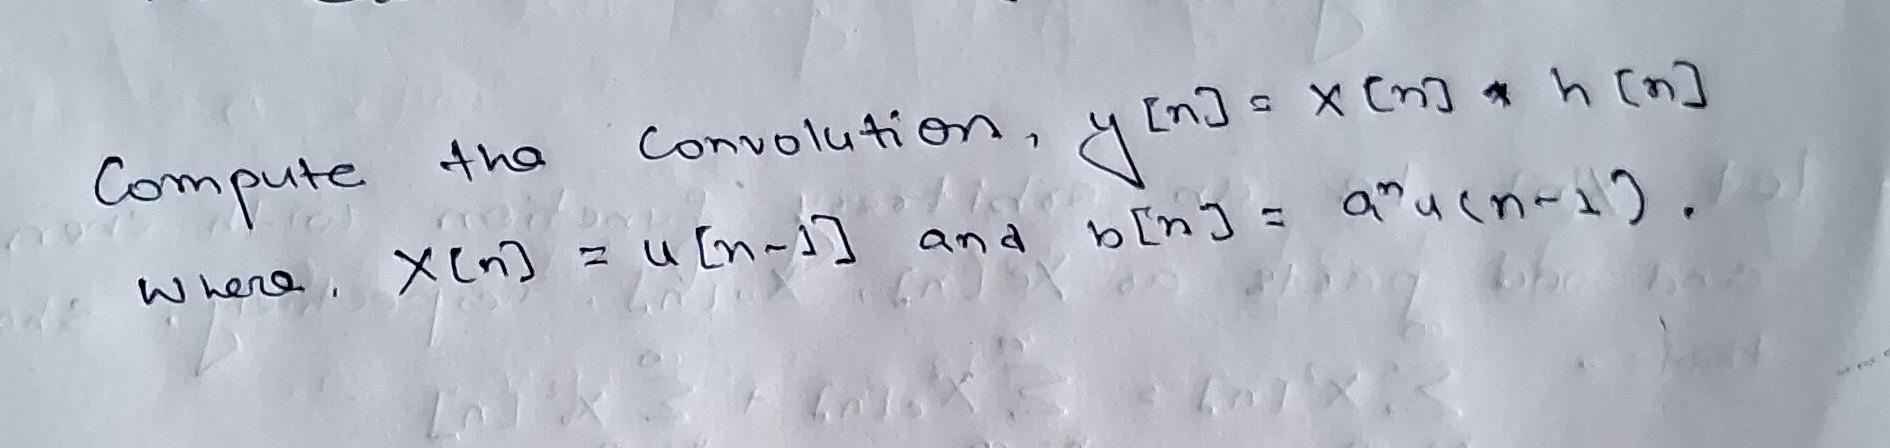 Compute the convolution, y[n] = x[n] * h[n]
where, x[n] = u[n-1] and b[n] = aⁿu(n-1).